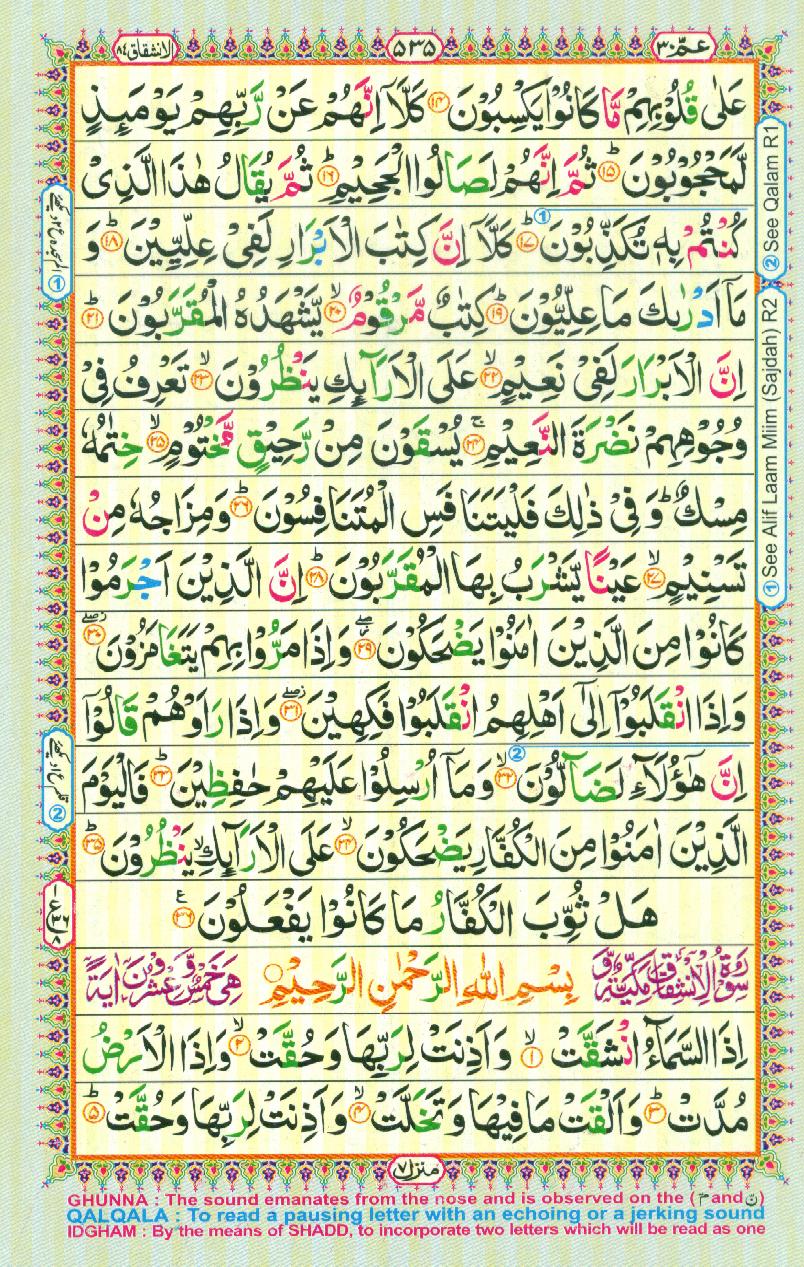 الانشقاق ٨٤
٥٣٥
عمّ ٣٠
عَلٰی قُلُوْبِهِمْ مَّا كَانُوْا یَكْسِبُوْنَ ۱۴ كَلَّاۤ اِنَّهُمْ عَنْ رَّبِّهِمْ یَوْمَىِٕذٍ
لَّمَحْجُوْبُوْنَ ؕ۱۵ ثُمَّ اِنَّهُمْ لَصَالُوا الْجَحِیْمِ ؕ۱۶ ثُمَّ یُقَالُ هٰذَا الَّذِیْ
كُنْتُمْ بِهٖ تُكَذِّبُوْنَ ؕ۱۷ ① كَلَّاۤ اِنَّ كِتٰبَ الْاَبْرَارِ لَفِیْ عِلِّیِّیْنَ ؕ۱۸ وَ
مَاۤ اَدْرٰىكَ مَا عِلِّیُّوْنَ ؕ۱۹ كِتٰبٌ مَّرْقُوْمٌ ۙ۲۰ یَّشْهَدُهُ الْمُقَرَّبُوْنَ ؕ۲۱
اِنَّ الْاَبْرَارَ لَفِیْ نَعِیْمٍ ۙ۲۲ عَلَی الْاَرَآىِٕكِ یَنْظُرُوْنَ ۙ۲۳ تَعْرِفُ فِیْ
وُجُوْهِهِمْ نَضْرَةَ النَّعِیْمِ ۚ۲۴ یُسْقَوْنَ مِنْ رَّحِیْقٍ مَّخْتُوْمٍ ۙ۲۵ خِتٰمُهٗ
مِسْكٌ ؕ وَ فِیْ ذٰلِكَ فَلْیَتَنَافَسِ الْمُتَنَافِسُوْنَ ؕ۲۶ وَ مِزَاجُهٗ مِنْ
تَسْنِیْمٍ ۙ۲۷ عَیْنًا یَّشْرَبُ بِهَا الْمُقَرَّبُوْنَ ؕ۲۸ اِنَّ الَّذِیْنَ اَجْرَمُوْا
كَانُوْا مِنَ الَّذِیْنَ اٰمَنُوْا یَضْحَكُوْنَ ۲۹ وَ اِذَا مَرُّوْا بِهِمْ یَتَغَامَزُوْنَ ۳۰
وَ اِذَا انْقَلَبُوْۤا اِلٰۤی اَهْلِهِمُ انْقَلَبُوْا فَكِهِیْنَ ۳۱ وَ اِذَا رَاَوْهُمْ قَالُوْۤا
اِنَّ هٰۤؤُلَآءِ لَضَآلُّوْنَ ۙ۳۲ ② وَ مَاۤ اُرْسِلُوْا عَلَیْهِمْ حٰفِظِیْنَ ؕ۳۳ فَالْیَوْمَ
الَّذِیْنَ اٰمَنُوْا مِنَ الْكُفَّارِ یَضْحَكُوْنَ ۙ۳۴ عَلَی الْاَرَآىِٕكِ ۙ یَنْظُرُوْنَ ؕ۳۵
هَلْ ثُوِّبَ الْكُفَّارُ مَا كَانُوْا یَفْعَلُوْنَ ۳۶ ع
سُوْرَةُ الْاِنْشِقَاقِ مَكِّیَّةٌ وَّ بِسْمِ اللهِ الرَّحْمٰنِ الرَّحِیْمِ هِیَ خَمْسٌ وَّ عِشْرُوْنَ اٰیَةً
اِذَا السَّمَآءُ انْشَقَّتْ ۙ۱ وَ اَذِنَتْ لِرَبِّهَا وَ حُقَّتْ ۙ۲ وَ اِذَا الْاَرْضُ
مُدَّتْ ؕ۳ وَ اَلْقَتْ مَا فِیْهَا وَ تَخَلَّتْ ۙ۴ وَ اَذِنَتْ لِرَبِّهَا وَ حُقَّتْ ؕ۵
منزل ٧
② See Qalam R1
① See Alif Laam Miim (Sajdah) R2
GHUNNA : The sound emanates from the nose and is observed on the (مّ and نّ)
QALQALA : To read a pausing letter with an echoing or a jerking sound
IDGHAM : By the means of SHADD, to incorporate two letters which will be read as one